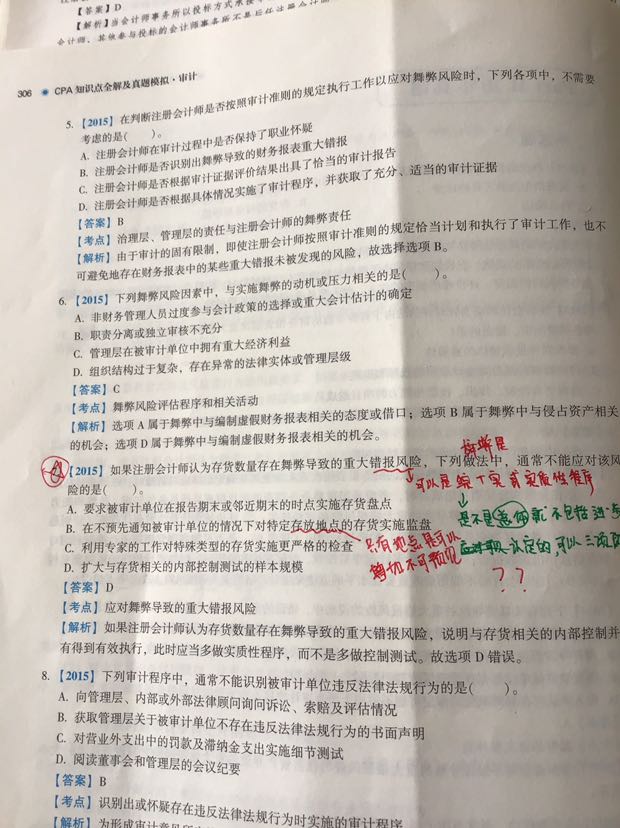 【答案】D
【解析】当会计师事务所以投标方式承接
会计师、其他参与投标的会计师事务所不是后任注册会计师
306 CPA 知识点全解及真题模拟·审计
5. 【2015】在判断注册会计师是否按照审计准则的规定执行工作以应对舞弊风险时，下列各项中，不需要
考虑的是( )。
A. 注册会计师在审计过程中是否保持了职业怀疑
B. 注册会计师是否识别出舞弊导致的财务报表重大错报
C. 注册会计师是否根据审计证据评价结果出具了恰当的审计报告
D. 注册会计师是否根据具体情况实施了审计程序，并获取了充分、适当的审计证据
【答案】B
【考点】治理层、管理层的责任与注册会计师的舞弊责任
【解析】由于审计的固有限制，即使注册会计师按照审计准则的规定恰当计划和执行了审计工作，也不
可避免地存在财务报表中的某些重大错报未被发现的风险，故选择选项B。
6. 【2015】下列舞弊风险因素中，与实施舞弊的动机或压力相关的是( )。
A. 非财务管理人员过度参与会计政策的选择或重大会计估计的确定
B. 职责分离或独立审核不充分
C. 管理层在被审计单位中拥有重大经济利益
D. 组织结构过于复杂，存在异常的法律实体或管理层级
【答案】C
【考点】舞弊风险评估程序和相关活动
【解析】选项A属于舞弊中与编制虚假财务报表相关的态度或借口；选项B属于舞弊中与侵占资产相关
的机会；选项D属于舞弊中与编制虚假财务报表相关的机会。
舞弊是
【2015】如果注册会计师认为存货数量存在舞弊导致的重大错报风险，下列做法中，通常不能应对该风
可以是综
险的是( )。
A. 要求被审计单位在报告期末或邻近期末的时点实施存货盘点
是不是
B. 在不预先通知被审计单位的情况下对特定存放地点的存货实施监盘
只有地点是可以
C. 利用专家的工作对特殊类型的存货实施更严格的检查
不可预见
D. 扩大与存货相关的内部控制测试的样本规模
？？
【答案】D
【考点】应对舞弊导致的重大错报风险
【解析】如果注册会计师认为存货数量存在舞弊导致的重大错报风险，说明与存货相关的内部控制并
有得到有效执行，此时应当多做实质性程序，而不是多做控制测试。故选项D错误。
8. 【2015】下列审计程序中，通常不能识别被审计单位违反法律法规行为的是( )。
A. 向管理层、内部或外部法律顾问询问诉讼、索赔及评估情况
B. 获取管理层关于被审计单位不存在违反法律法规行为的书面声明
C. 对营业外支出中的罚款及滞纳金支出实施细节测试
D. 阅读董事会和管理层的会议纪要
【答案】B
【考点】识别出或怀疑存在违反法律法规行为时实施的审计程序
【解析】为形成审计意见所